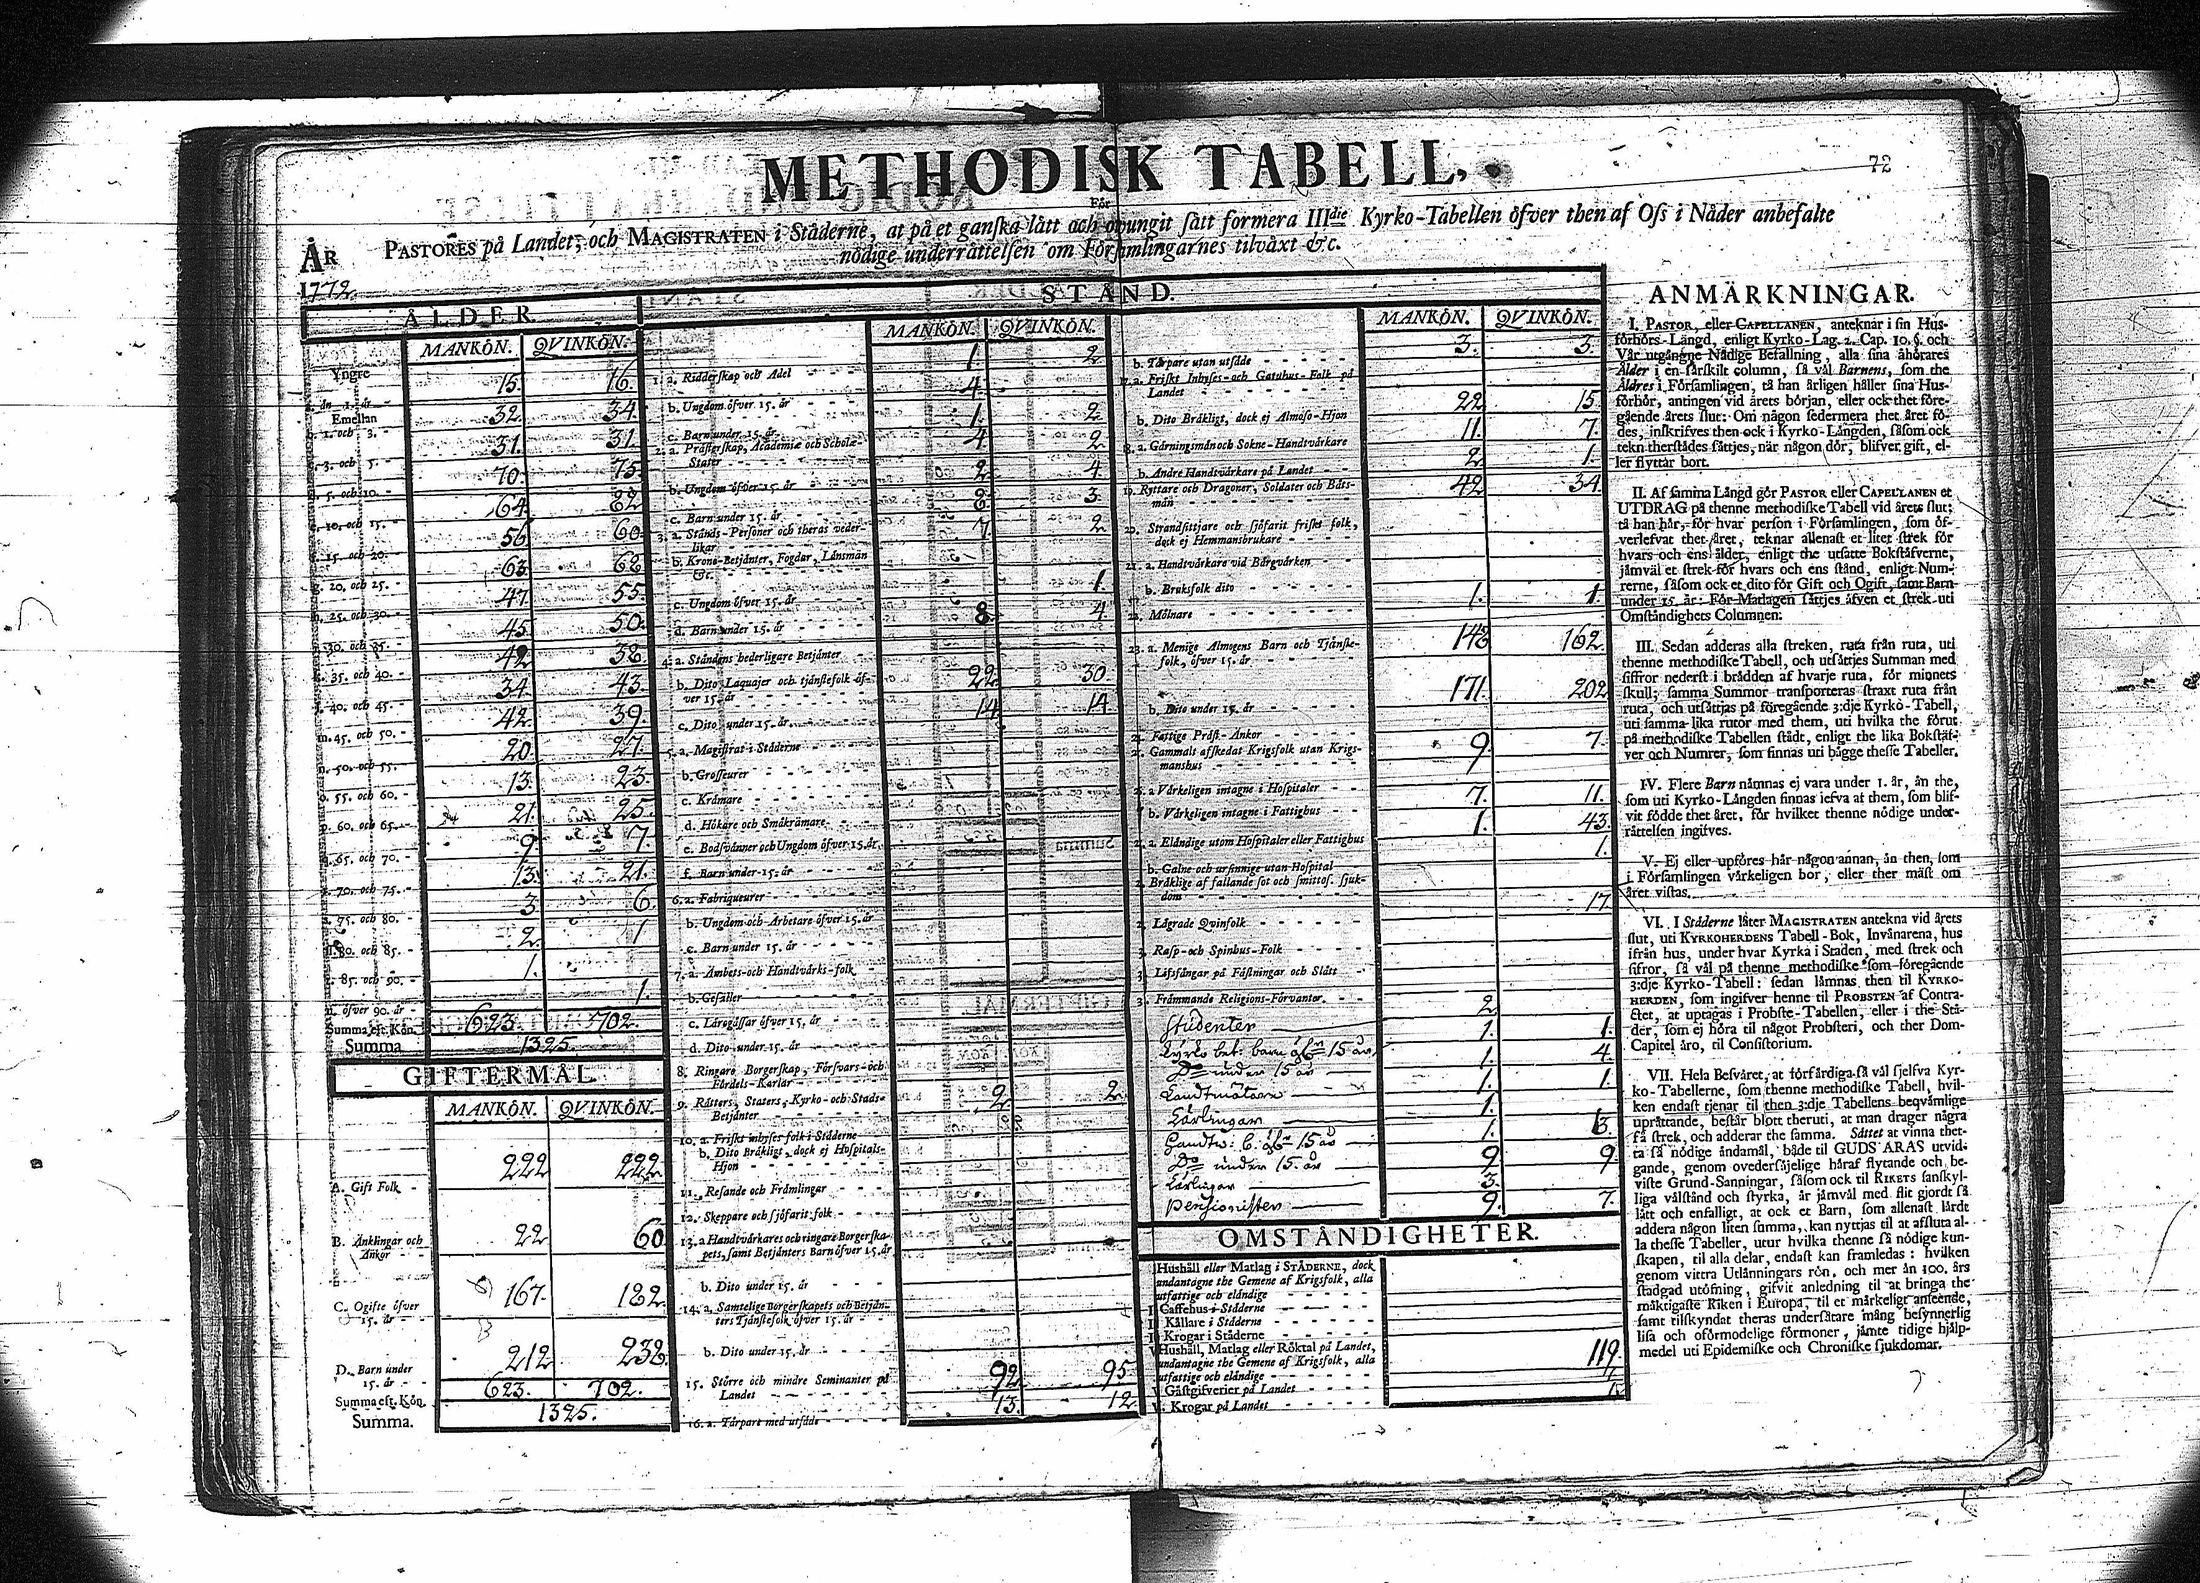 72
METHODISK TABELL,
För
PASTORES på Landet, och MAGISTRATEN i Städerne, at på et ganska lätt och otungit sätt formera IIIdie Kyrko-Tabellen öfver then af Oss i Nåder anbefalte
nödige underrättelsen om Församlingarnes tilväxt &c.
ÅR
1772.
ÅLDER.
MANKÖN. QVINKÖN.
Yngre än 1. år 15. 16.
Emellan
1. och 3. 32. 34.
3. och 5. 31. 31.
5. och 10. 70. 75.
10. och 15. 64. 82
15. och 20. 56 60
20. och 25. 63. 62
25. och 30. 47. 55.
30. och 35. 45. 50.
35. och 40. 42. 38
40. och 45. 34. 43.
m. 45. och 50. 42. 39.
n. 50. och 55. 20. 27.
o. 55. och 60. 13. 23.
p. 60. och 65. 21. 25.
65. och 70. 9. 7.
70. och 75. 13. 21.
75. och 80. 3. 6.
80. och 85. 2. 1
85. och 90. 1.
öfver 90. år 1.
Summa eft. Kön. 623. 702.
Summa 1325.
GIFTERMÅL.
MANKÖN. QVINKÖN.
A. Gift Folk 222 222.
B. Änklingar och Änkor 22 60
C. Ogifte öfver 15. år 167. 182.
D. Barn under 15. år 212 238
Summa eft. Kön. 623. 702.
Summa. 1325.
STÅND.
MANKÖN. QVINKÖN.
1. a. Ridderskap och Adel 1. 2
b. Ungdom öfver 15. år 4.
c. Barn under 15. år 1. 2
2. a. Prästerskap, Academiæ och Scholæ-Stater 4 2
b. Ungdom öfver 15. år 2 4.
c. Barn under 15. år 3.
3. a. Stånds-Personer och theras vederlikar 7. 2
b. Krono-Betjänter, Fogdar, Länsmän &c.
c. Ungdom öfver 15. år 1.
d. Barn under 15. år 8 4.
4. a. Ståndens hederligare Betjänter
b. Dito Laquajer och tjänstefolk öfver 15. år 22 30.
c. Dito under 15. år 14. 14.
5. a. Magistrat i Städerne
b. Grosseurer
c. Krämare
d. Hökare och Småkrämare
e. Bodsvänner och Ungdom öfver 15. år
f. Barn under 15. år
6. a. Fabriqueurer
b. Ungdom och Arbetare öfver 15. år
c. Barn under 15. år
7. a. Ämbets- och Handtvärks-folk
b. Gesäller
c. Lärogåssar öfver 15. år
d. Dito under 15. år
8. Ringare Borgerskap, Försvars- och Fördels-Karlar
9. Rätters, Staters, Kyrko- och Stads-Betjänter 2. 2
10. a. Friskt inhyses folk i Städerne
b. Dito Bräkligt, dock ej Hospitals-Hjon
11. Resande och Främlingar
12. Skeppare och sjöfarit folk
13. a Handtvärkares och ringare Borgerskapets, samt Betjänters Barn öfver 15. år
b. Dito under 15. år
14. a. Samtelige Borgerskapets och Betjänters Tjänstefolk öfver 15. år
b. Dito under 15. år
15. Större och mindre Seminanter på Landet 92 95
16. a. Tårpare med utsäde 13. 12
MANKÖN. QVINKÖN.
b. Tårpare utan utsäde 3. 3.
17. a. Friskt Inhyses- och Gatuhus-Folk på Landet 22 15.
b. Dito Bräkligt, dock ej Almoso-Hjon 11. 7.
18. a. Gärningsmän och Sokne-Handtvärkare 2 1.
b. Andre Handtvärkare på Landet
19. Ryttare och Dragoner, Soldater och Båtsmän 42 34.
20. Strandsittjare och sjöfarit friskt folk, dock ej Hemmansbrukare
21. a. Handtvärkare vid Bärgvärken
b. Bruksfolk dito
22. Mölnare 1. 1
23. a. Menige Almogens Barn och Tjänstefolk, öfver 15. år 148 162.
b. Dito under 15. år 171. 202
24. Fattige Präst-Änkor
25. Gammalt afskedat Krigsfolk utan Krigsmanshus 9. 7.
26. a Värkeligen intagne i Hospitaler
b. Värkeligen intagne i Fattighus 7. 11.
27. a. Eländige utom Hospitaler eller Fattighus 1. 43.
b. Galne och ursinnige utan Hospital 1.
Bräklige af fallande sot och smittos. sjukdom
Lägrade Qvinfolk 17
Rasp- och Spinhus-Folk
Lifsfångar på Fästningar och Slått
Främmande Religions-Förvanter
Studenter 2
Kyrko bet: barn öfr 15 år 1. 1.
Do under 15 år 1. 4.
Landtmätare 1. 1.
Lärlingar 1.
Handtw: b. öfr 15 år 1.
Do under 15. år 9 9
Lärlingar 3.
Pensionister 9. 7.
OMSTÄNDIGHETER.
Hushåll eller Matlag i STÄDERNE, dock undantagne the Gemene af Krigsfolk, alla utfattige och eländige
Caffehus i Städerne
Källare i Städerne
Krogar i Städerne
Hushåll, Matlag eller Röktal på Landet, undantagne the Gemene af Krigsfolk, alla utfattige och eländige 119.
Gästgifverier på Landet
Krogar på Landet
ANMÄRKNINGAR.
I. PASTOR, eller CAPELLANEN, anteknar i sin Hus-
förhörs-Längd, enligt Kyrko-Lag. 2. Cap. 10. §. och
Vår utgångne Nådige Befallning, alla sina åhörares
Ålder i en särskilt column, så väl Barnens, som the
Äldres i Församlingen, tå han årligen håller sina Hus-
förhör, antingen vid årets början, eller ock thet före-
gående årets slut: Om någon sedermera thet året fö-
des, inskrifves then ock i Kyrko-Längden, såsom ock
tekn therstädes sättjes, när någon dör, blifver gift, el-
ler flyttar bort.
II. Af samma Längd gör PASTOR eller CAPELLANEN et
UTDRAG på thenne methodiske Tabell vid årets slut;
tå han här, för hvar person i Församlingen, som öf-
verlefvat thet året, teknar allenast et litet strek för
hvars och ens ålder, enligt the utsatte Bokstäfverne,
jämväl et strek för hvars och ens stånd, enligt Num-
rerne, såsom ock et dito för Gift och Ogift, samt Barn
under 15. år: För Matlagen sättjes äfven et strek uti
Omständighets Columnen:
III. Sedan adderas alla streken, ruta från ruta, uti
thenne methodiske Tabell, och utsättjes Summan med
siffror nederst i brädden af hvarje ruta, för minnets
skull; samma Summor transporteras straxt ruta från
ruta, och utsättjas på föregående 3:dje Kyrko-Tabell,
uti samma lika rutor med them, uti hvilka the förut
på methodiske Tabellen städt, enligt the lika Bokstäf-
ver och Numrer, som finnas uti bägge thesse Tabeller.
IV. Flere Barn nämnas ej vara under 1. år, än the,
som uti Kyrko-Längden finnas lefva af them, som blif-
vit födde thet året, för hvilket thenne nödige under-
rättelsen ingifves.
V. Ej eller upföres här någon annan, än then, som
i Församlingen värkeligen bor, eller ther mäst om
året vistas.
VI. I Städerne låter MAGISTRATEN antekna vid årets
slut, uti KYRKOHERDENS Tabell-Bok, Invånarena, hus
ifrån hus, under hvar Kyrka i Staden, med strek och
sifror, så väl på thenne methodiske som föregående
3:dje Kyrko-Tabell: sedan lämnas then til KYRKO-
HERDEN, som ingifver henne til PROBSTEN af Contra-
ctet, at uptagas i Probste-Tabellen, eller i the Stä-
der, som ej höra til något Probsteri, och ther Dom-
Capitel äro, til Consistorium.
VII. Hela Besväret, at förfärdiga så väl sjelfva Kyr-
ko-Tabellerne, som thenne methodiske Tabell, hvil-
ken endast tjenar til then 3:dje Tabellens beqvämlige
uprättande, består blott theruti, at man drager några
få strek, och adderar the samma. Sättet at vinna thet-
ta så nödige ändamål, både til GUDS ÄRAS utvid-
gande, genom ovedersäjelige häraf flytande och be-
viste Grund-Sanningar, såsom ock til RIKETS sanskyl-
liga välstånd och styrka, är jämväl med flit gjordt så
lätt och enfalligt, at ock et Barn, som allenast lärdt
addera någon liten summa, kan nyttjas til at afsluta al-
la thesse Tabeller, utur hvilka thenne så nödige kun-
skapen, til alla delar, endast kan framledas: hvilken
genom vittra Utlänningars rön, och mer än 100. års
stadgad utöfning, gifvit anledning til at bringa the
mäktigaste Riken i Europa, til et märkeligt anseende,
samt tilskyndat theras undersåtare mång besynnerlig
lisa och oförmodelige förmoner, jämte tidige hjälp-
medel uti Epidemiske och Chroniske sjukdomar.